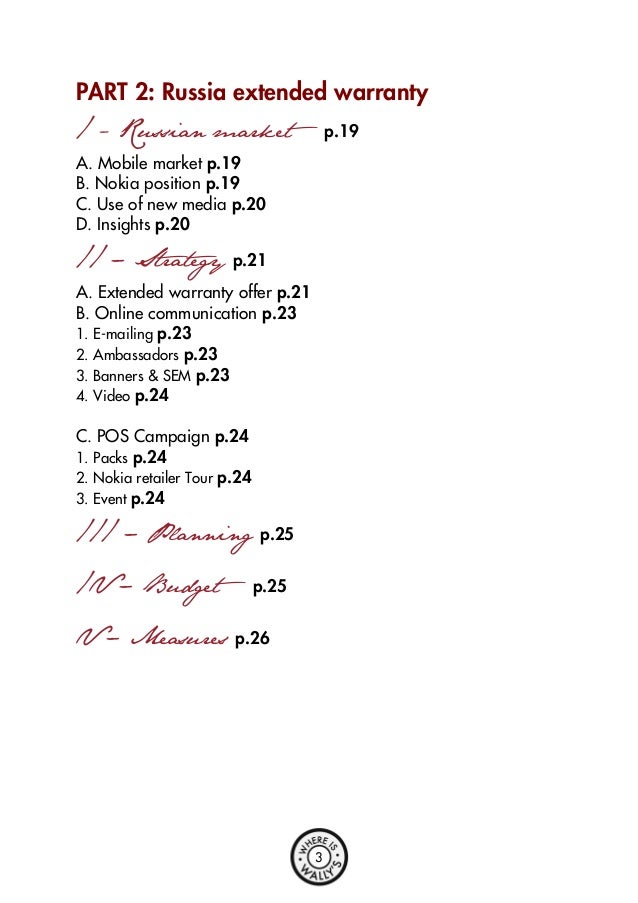 PART 2: Russia extended warranty
I – Russian market p.19
A. Mobile market p.19
B. Nokia position p.19
C. Use of new media p.20
D. Insights p.20
II – Strategy p.21
A. Extended warranty offer p.21
B. Online communication p.23
1. E-mailing p.23
2. Ambassadors p.23
3. Banners & SEM p.23
4. Video p.24
C. POS Campaign p.24
1. Packs p.24
2. Nokia retailer Tour p.24
3. Event p.24
III – Planning p.25
IV – Budget p.25
V – Measures p.26
WHERE IS
3
WALLY'S